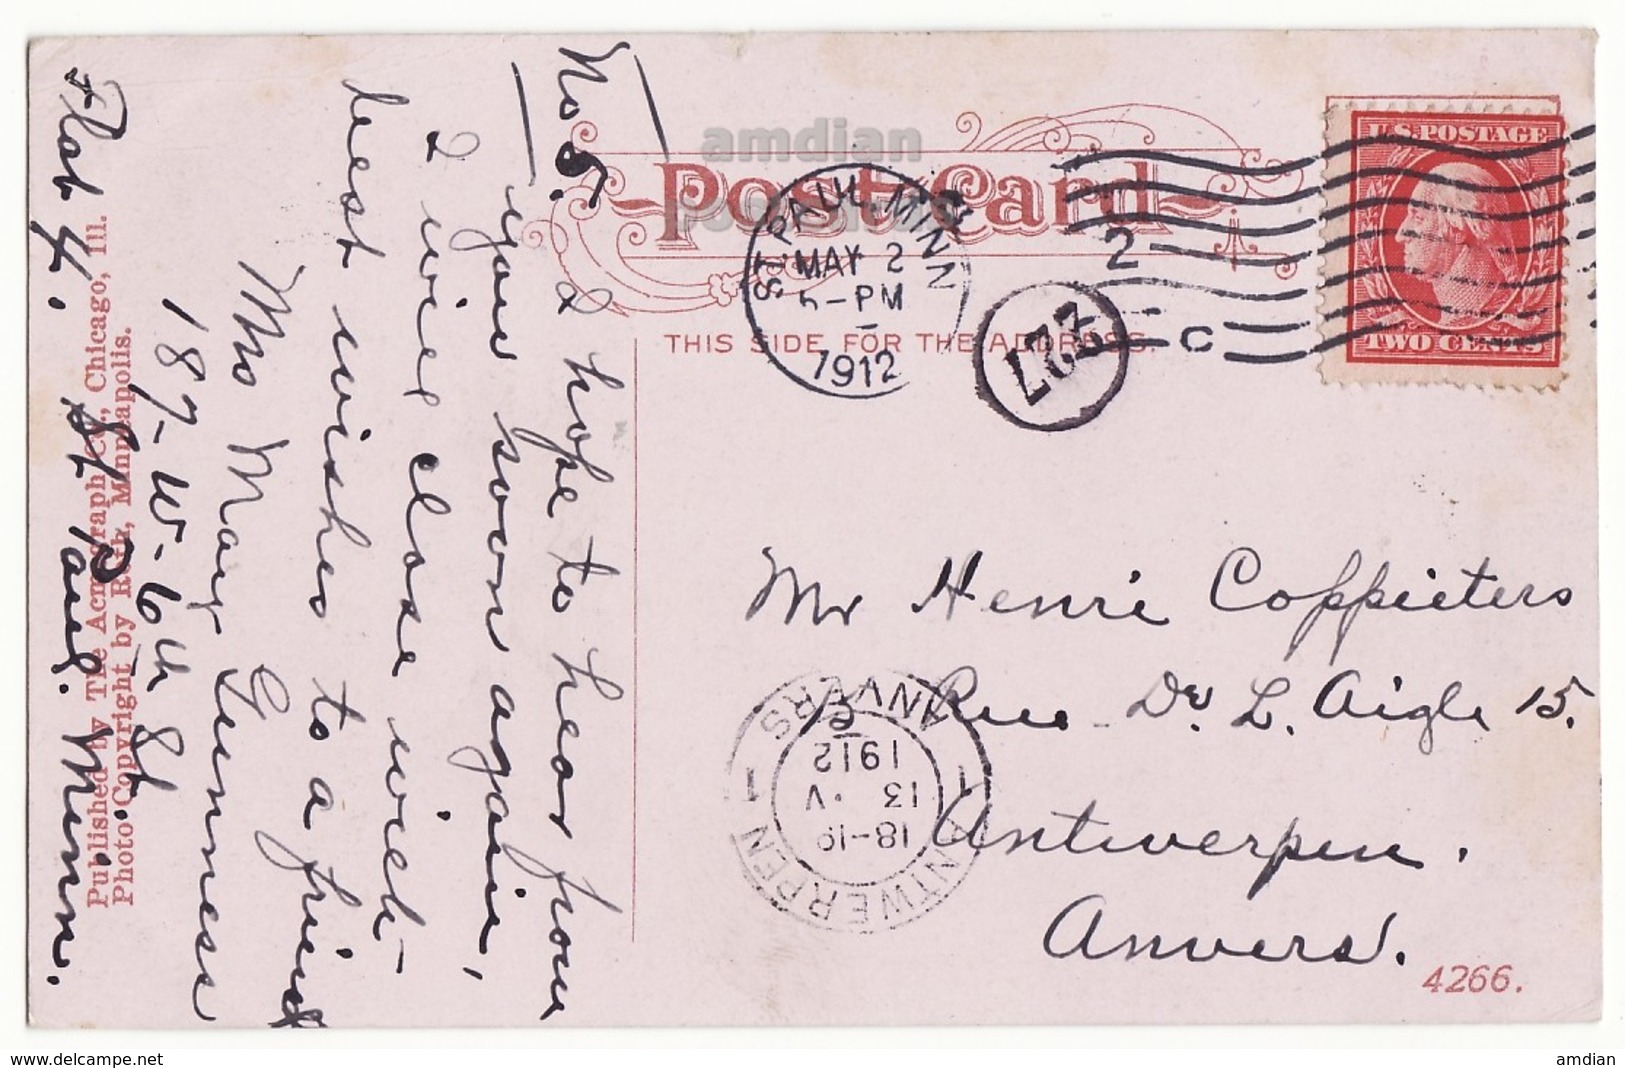 No 5.
I hope to hear from
you soon again,
I will close with
best wishes to a friend
Mrs Mary Gunness
187-W-6th St.
Flat 4. St Paul. Minn.
Published by The Acmegraph Co., Chicago, Ill.
Photo Copyright by Roth, Minneapolis.
amdian
Post Card
postcards
THIS SIDE FOR THE ADDRESS.
ST. PAUL, MINN
MAY 2
5-PM
1912
2
C
227
U.S. POSTAGE
TWO CENTS
Mr Henri Coppieters
Rue De L. Aigle 15.
Antwerpen.
Anvers.
ANTWERPEN 1
1 ANVERS
18-19
13 V
1912
4266.
http://amdian.ebid.net
amdian